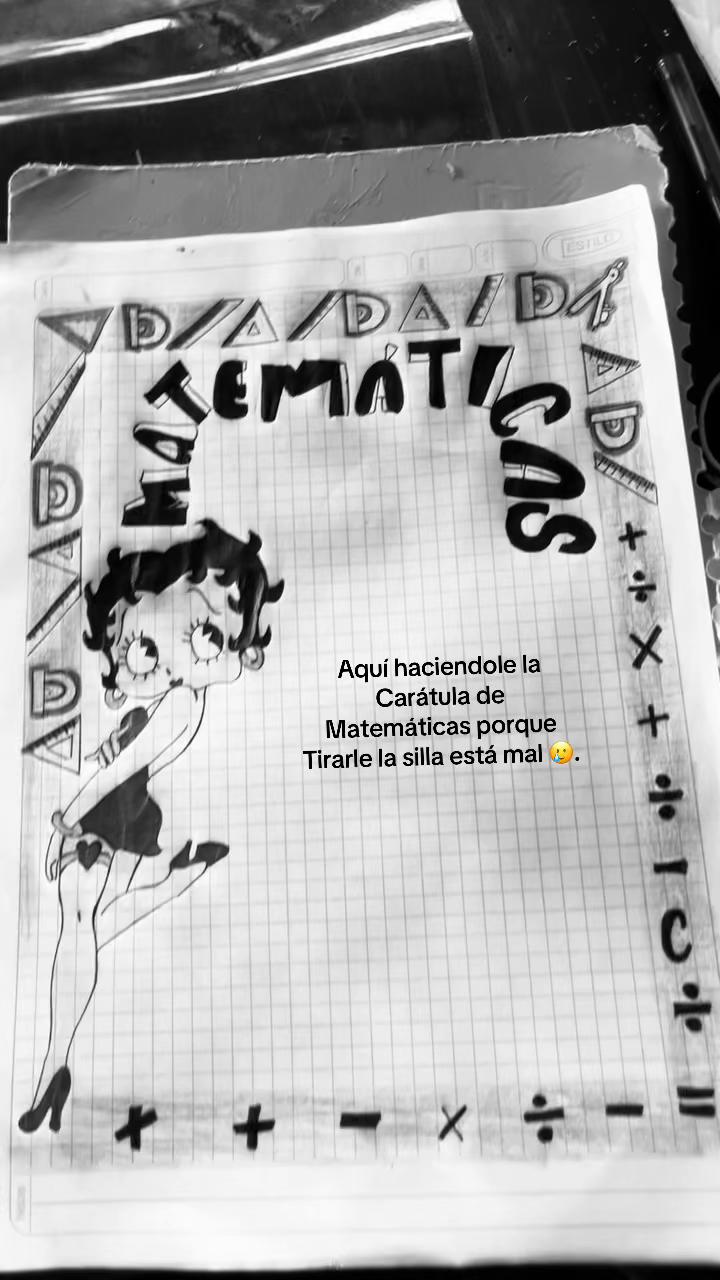 ESTILO
MATEMÁTICAS
Aquí haciendole la
Carátula de
Matemáticas porque
Tirarle la silla está mal 🥲.
+
÷
×
+
÷
-
C
÷
=
× + - × ÷ -